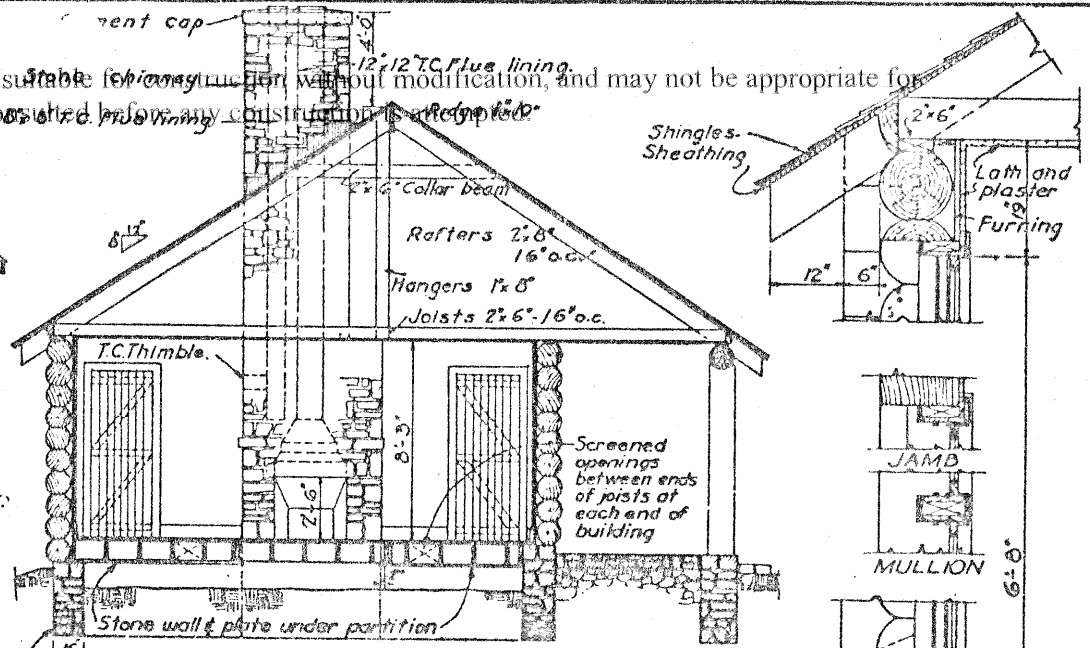 ent cap
4'-0"
12"x12" T.C. Flue lining.
suitable for construction without modification, and may not be appropriate for
Stone chimney
onsulted before any construction is attempted.
8"x8" T.C. Flue lining
Ridge
2"x6" Collar beam
8" 12"
Rafters 2"x8"
16" o.c.
Hangers 1"x8"
Joists 2"x6"-16" o.c.
T.C. Thimble.
8'-3"
2'-6"
Screened
openings
between ends
of joists at
each end of
building
Stone wall & plate under partition
Shingles
Sheathing
2"x6"
Lath and
plaster
Furring
12" 6"
JAMB
MULLION
6'-8"